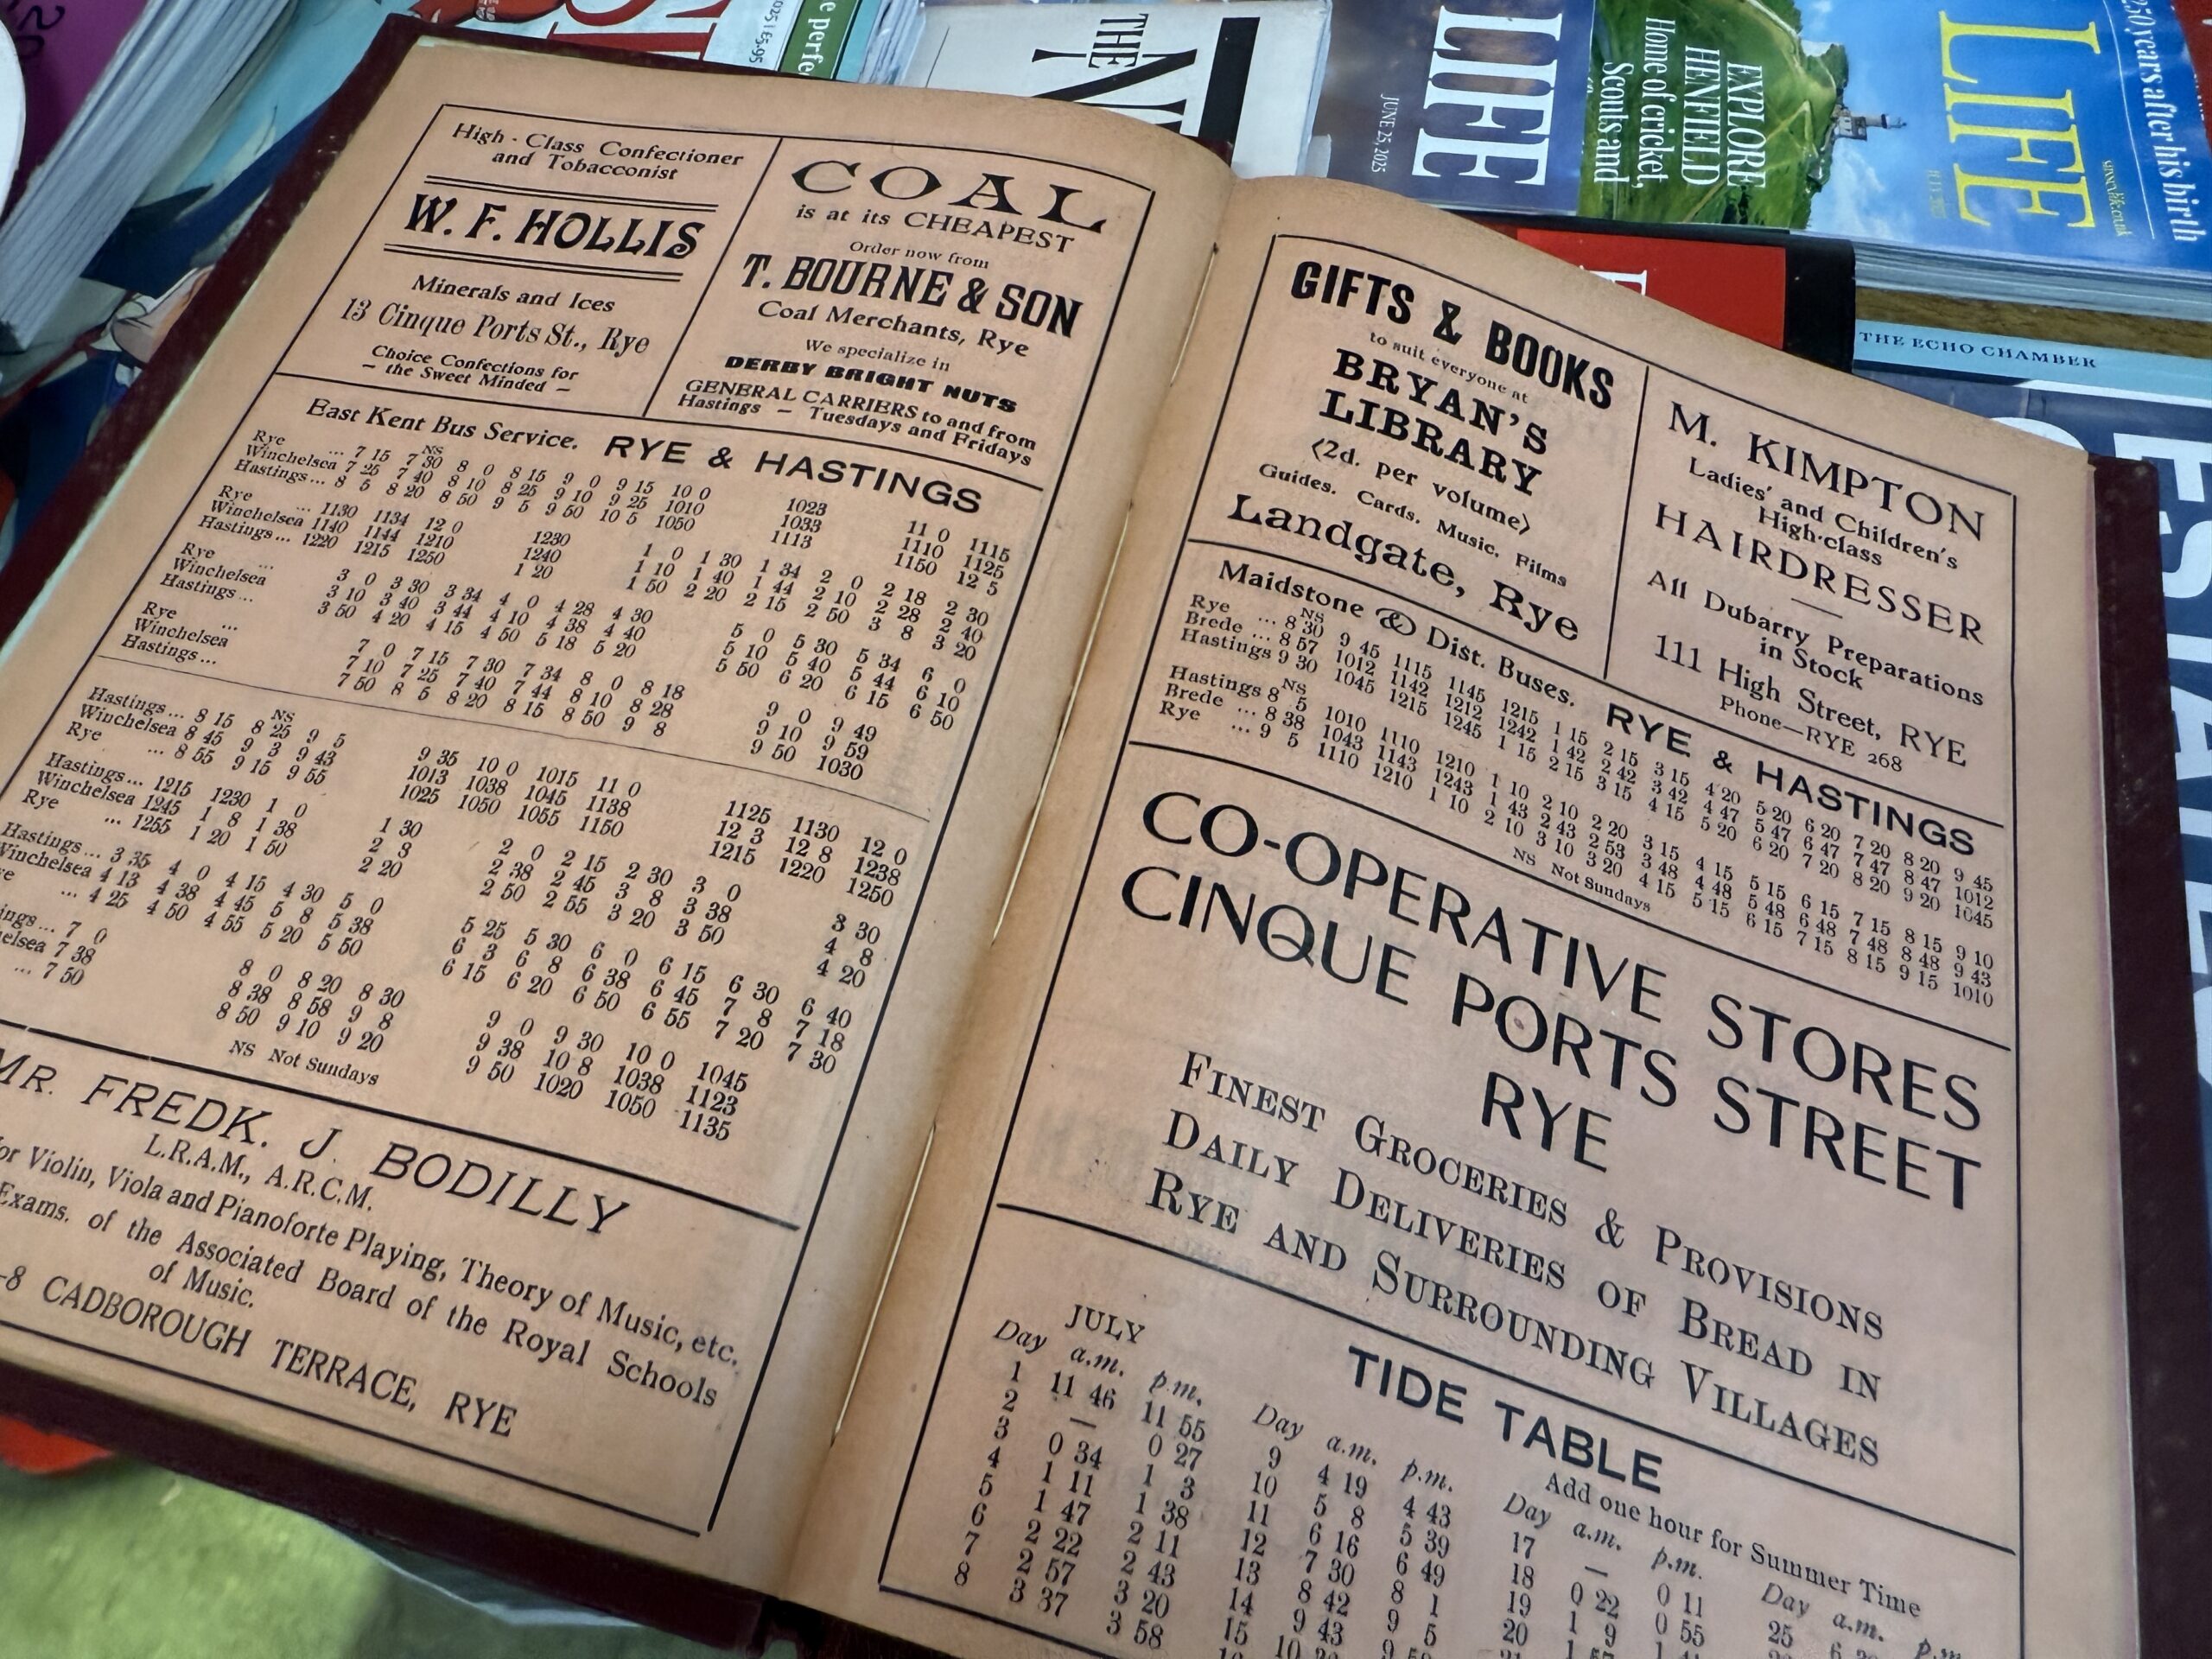 2025 | £5.95
e perfe
THE
N
LIFE
JUNE 25, 2025
EXPLORE
HENFIELD
Home of cricket,
Scouts and
LIFE
JULY 2025
sussexlife.co.uk
250 years after his birth
THE ECHO CHAMBER
High-Class Confectioner
and Tobacconist
W. F. HOLLIS
Minerals and Ices
13 Cinque Ports St., Rye
Choice Confections for
— the Sweet Minded —
COAL
is at its CHEAPEST
Order now from
T. BOURNE & SON
Coal Merchants, Rye
We specialize in
DERBY BRIGHT NUTS
GENERAL CARRIERS to and from
Hastings — Tuesdays and Fridays
East Kent Bus Service. RYE & HASTINGS
NS
Rye ... 7 15 7 30 8 0 8 15 9 0 9 15 10 0 1023 11 0 1115
Winchelsea 7 25 7 40 8 10 8 25 9 10 9 25 1010 1033 1110 1125
Hastings... 8 5 8 20 8 50 9 5 9 50 10 5 1050 1113 1150 12 5
Rye ... 1130 1134 12 0 1230 1 0 1 30 1 34 2 0 2 18 2 30
Winchelsea 1140 1144 1210 1240 1 10 1 40 1 44 2 10 2 28 2 40
Hastings... 1220 1215 1250 1 20 1 50 2 20 2 15 2 50 3 8 3 20
Rye ... 3 0 3 30 3 34 4 0 4 28 4 30 5 0 5 30 5 34 6 0
Winchelsea 3 10 3 40 3 44 4 10 4 38 4 40 5 10 5 40 5 44 6 10
Hastings... 3 50 4 20 4 15 4 50 5 18 5 20 5 50 6 20 6 15 6 50
Rye ... 7 0 7 15 7 30 7 34 8 0 8 18 9 0 9 49
Winchelsea 7 10 7 25 7 40 7 44 8 10 8 28 9 10 9 59
Hastings... 7 50 8 5 8 20 8 15 8 50 9 8 9 50 1030
NS
Hastings... 8 15 8 25 9 5 9 35 10 0 1015 11 0 1125 1130 12 0
Winchelsea 8 45 9 3 9 43 1013 1038 1045 1138 12 3 12 8 1238
Rye ... 8 55 9 15 9 55 1025 1050 1055 1150 1215 1220 1250
Hastings... 1215 1230 1 0 1 30 2 0 2 15 2 30 3 0 3 30
Winchelsea 1245 1 8 1 38 2 8 2 38 2 45 3 8 3 38 4 8
Rye ... 1255 1 20 1 50 2 20 2 50 2 55 3 20 3 50 4 20
Hastings... 3 35 4 0 4 15 4 30 5 0 5 25 5 30 6 0 6 15 6 30 6 40
Winchelsea 4 13 4 38 4 45 5 8 5 38 6 3 6 8 6 38 6 45 7 8 7 18
ye ... 4 25 4 50 4 55 5 20 5 50 6 15 6 20 6 50 6 55 7 20 7 30
ings... 7 0 8 0 8 20 8 30 9 0 9 30 10 0 1045
elsea 7 38 8 38 8 58 9 8 9 38 10 8 1038 1123
... 7 50 8 50 9 10 9 20 9 50 1020 1050 1135
NS Not Sundays
MR. FREDK. J. BODILLY
L.R.A.M., A.R.C.M.
for Violin, Viola and Pianoforte Playing, Theory of Music, etc.
Exams. of the Associated Board of the Royal Schools
of Music.
-8 CADBOROUGH TERRACE, RYE
GIFTS & BOOKS
to suit everyone at
BRYAN'S
LIBRARY
(2d. per volume)
Guides. Cards. Music. Films
Landgate, Rye
M. KIMPTON
Ladies' and Children's
High-class
HAIRDRESSER
All Dubarry Preparations
in Stock
111 High Street, RYE
Phone—RYE 268
Maidstone & Dist. Buses. RYE & HASTINGS
NS
Rye ... 8 30 9 45 1115 1145 1215 1 15 2 15 3 15 4 20 5 20 6 20 7 20 8 20 9 45
Brede ... 8 57 1012 1142 1212 1242 1 42 2 42 3 42 4 47 5 47 6 47 7 47 8 47 1012
Hastings 9 30 1045 1215 1245 1 15 2 15 3 15 4 15 5 20 6 20 7 20 8 20 9 20 1045
NS
Hastings 8 5 1010 1110 1210 1 10 2 10 2 20 3 15 4 15 5 15 6 15 7 15 8 15 9 10
Brede ... 8 38 1043 1143 1243 1 43 2 43 2 53 3 48 4 48 5 48 6 48 7 48 8 48 9 43
Rye ... 9 5 1110 1210 1 10 2 10 3 10 3 20 4 15 5 15 6 15 7 15 8 15 9 15 1010
NS Not Sundays
CO-OPERATIVE STORES
CINQUE PORTS STREET
RYE
FINEST GROCERIES & PROVISIONS
DAILY DELIVERIES OF BREAD IN
RYE AND SURROUNDING VILLAGES
TIDE TABLE
JULY Add one hour for Summer Time
Day a.m. p.m. Day a.m. p.m. Day a.m. p.m. Day a.m. p.m.
1 11 46 11 55 9 4 19 4 43 17 — 0 11 25
2 — 0 27 10 5 8 5 39 18 0 22 0 55
3 0 34 1 3 11 6 16 6 49 19 1 9
4 1 11 1 38 12 7 30 8 1 20
5 1 47 2 11 13 8 42 9 5
6 2 22 2 43 14 9 43
7 2 57 3 20 15
8 3 37 3 58